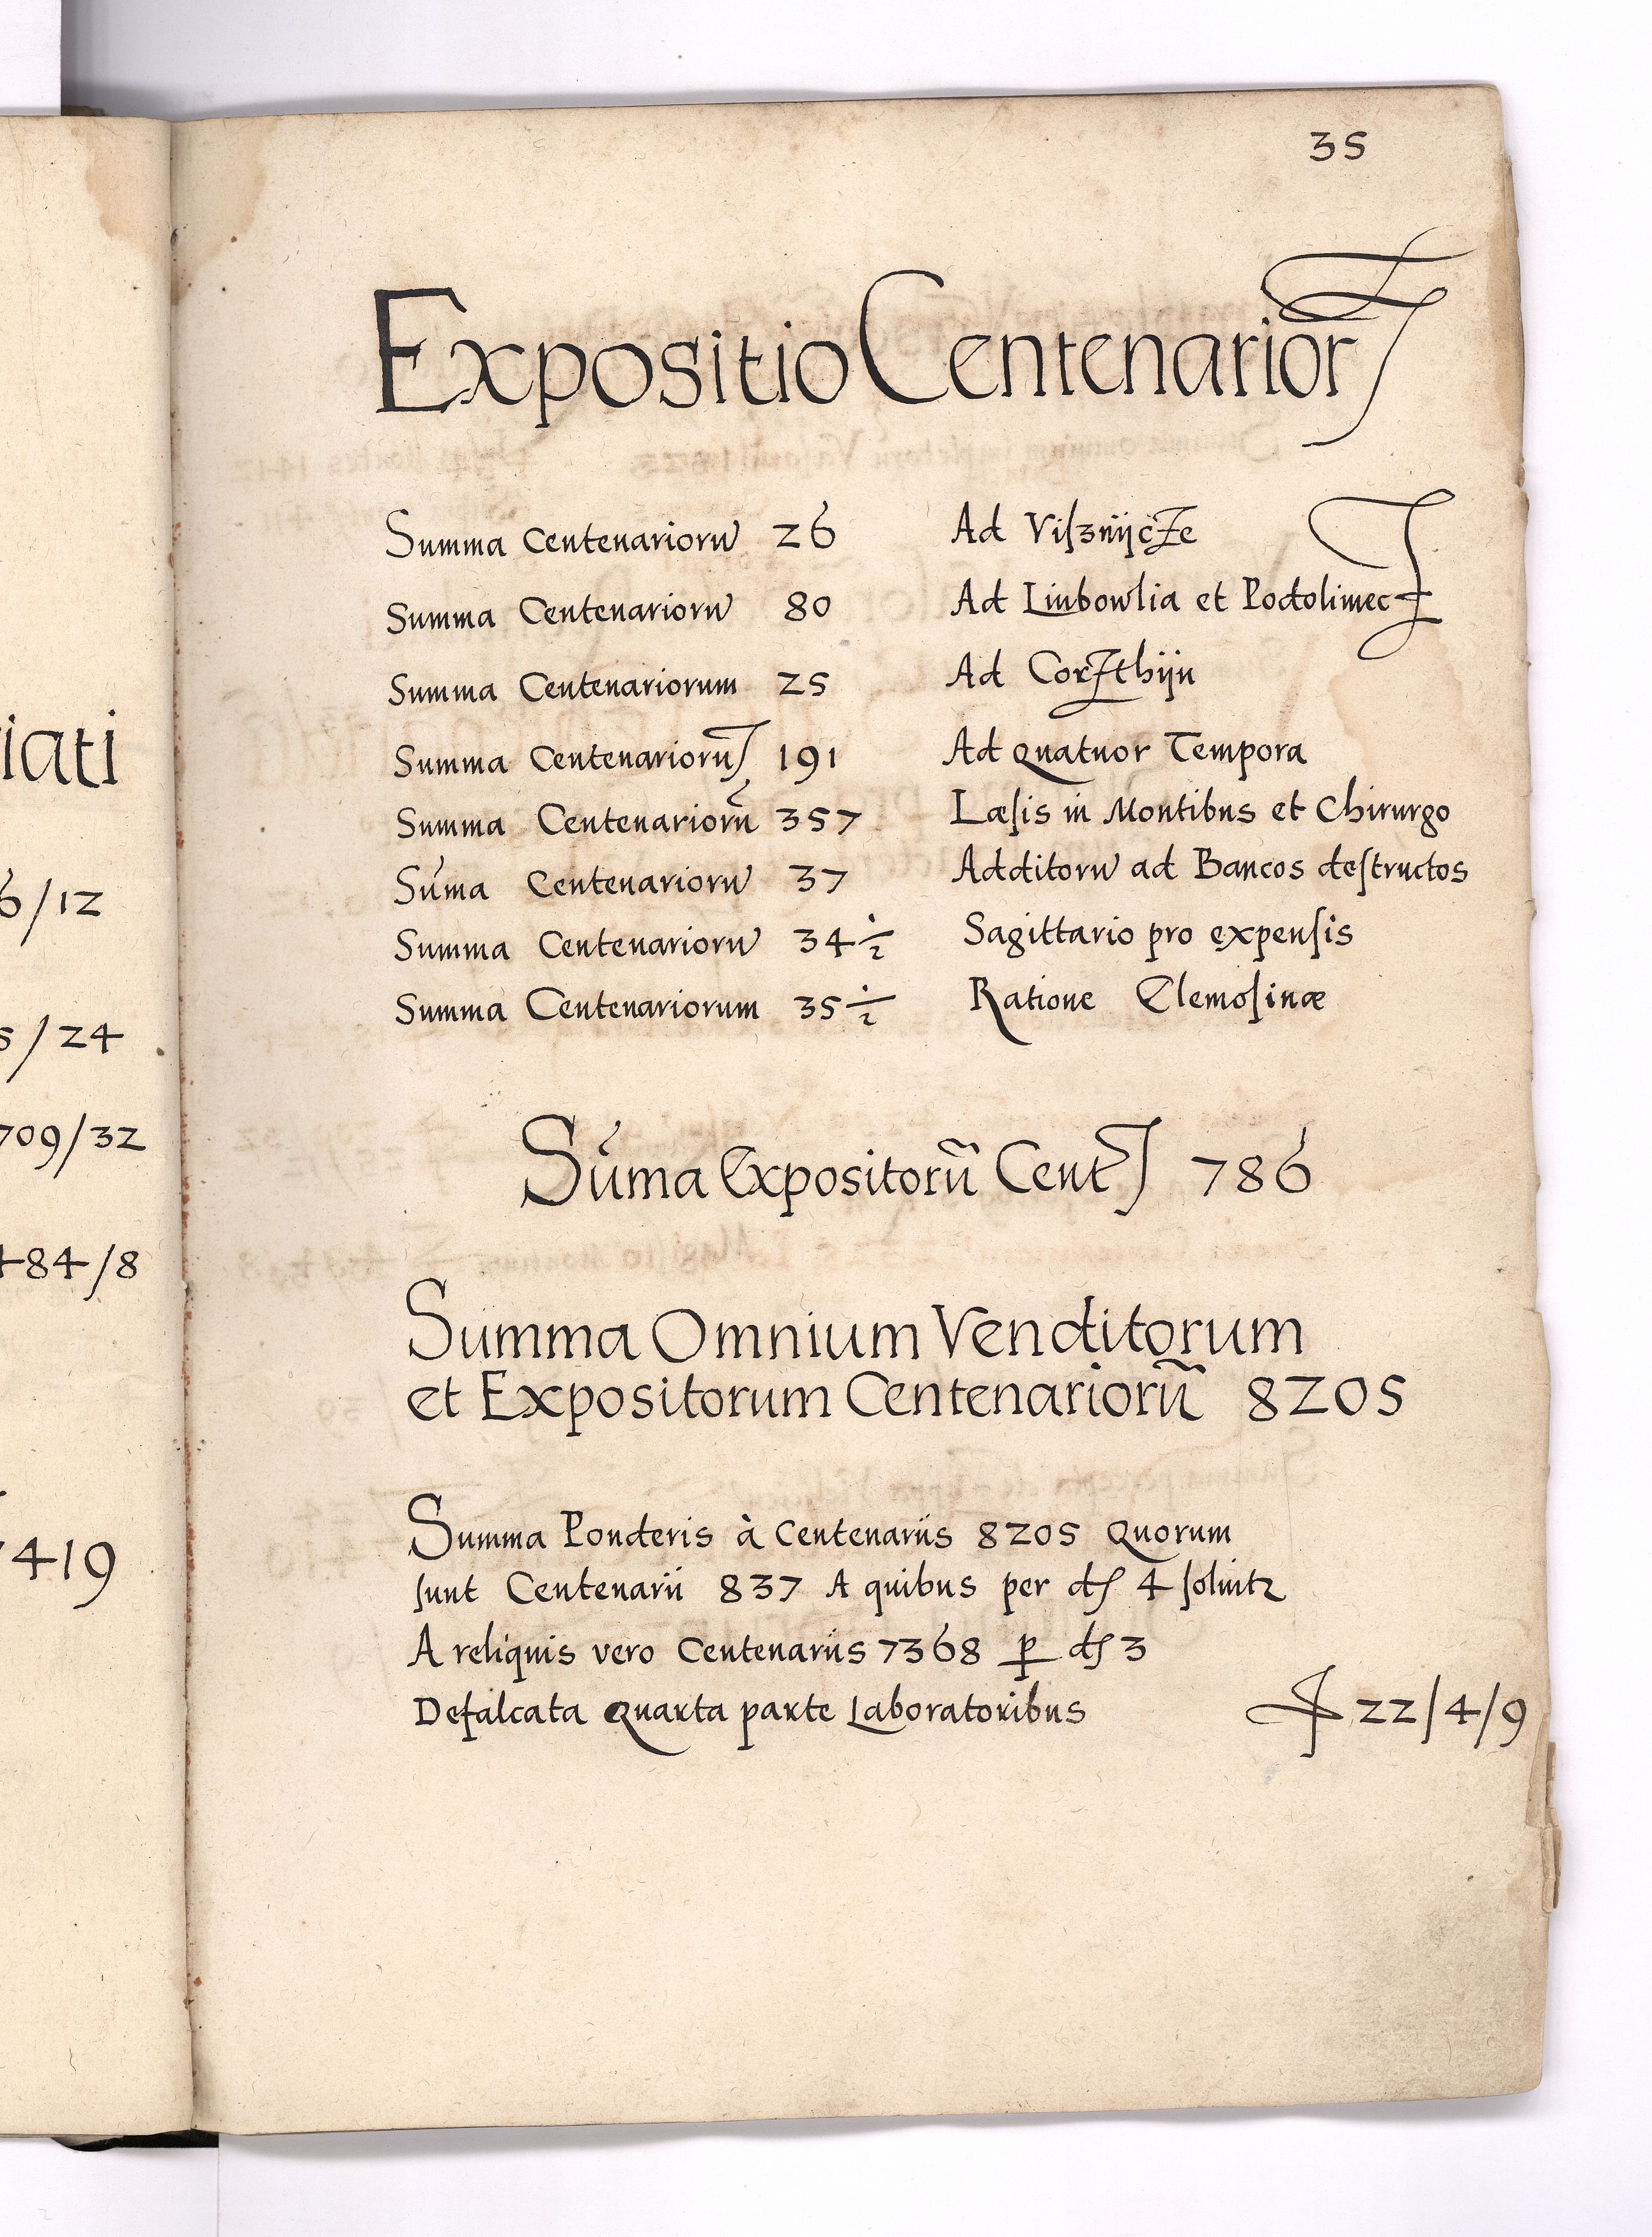 iati
6/12
5/24
709/32
484/8
7419
35
Expositio Centenarior
Summa Centenarioru 26 Ad Viſznijcze
Summa Centenarioru 80 Ad Liubowlia et Podolimecz
Summa Centenariorum 25 Ad Corzthijn
Summa Centenarioru 191 Ad Quatuor Tempora
Summa Centenariorũ 357 Læſis in Montibus et Chirurgo
Sum̃a Centenarioru 37 Additoru ad Bancos deſtructos
Summa Centenarioru 34 ½ Sagittario pro expenſis
Summa Centenariorum 35 ½ Ratione Elemoſinæ
Sum̃a Expositorũ Cent 786
Summa Omnium Venditorum
et Expositorum Centenariorũ 8205
Summa Ponderis à Centenariis 8205 Quorum
ſunt Centenarii 837 A quibus per 4 ſoluitꝛ
A reliquis vero Centenariis 7368 ꝑ 3
Defalcata Quarta parte Laboratoribus 22/4/9